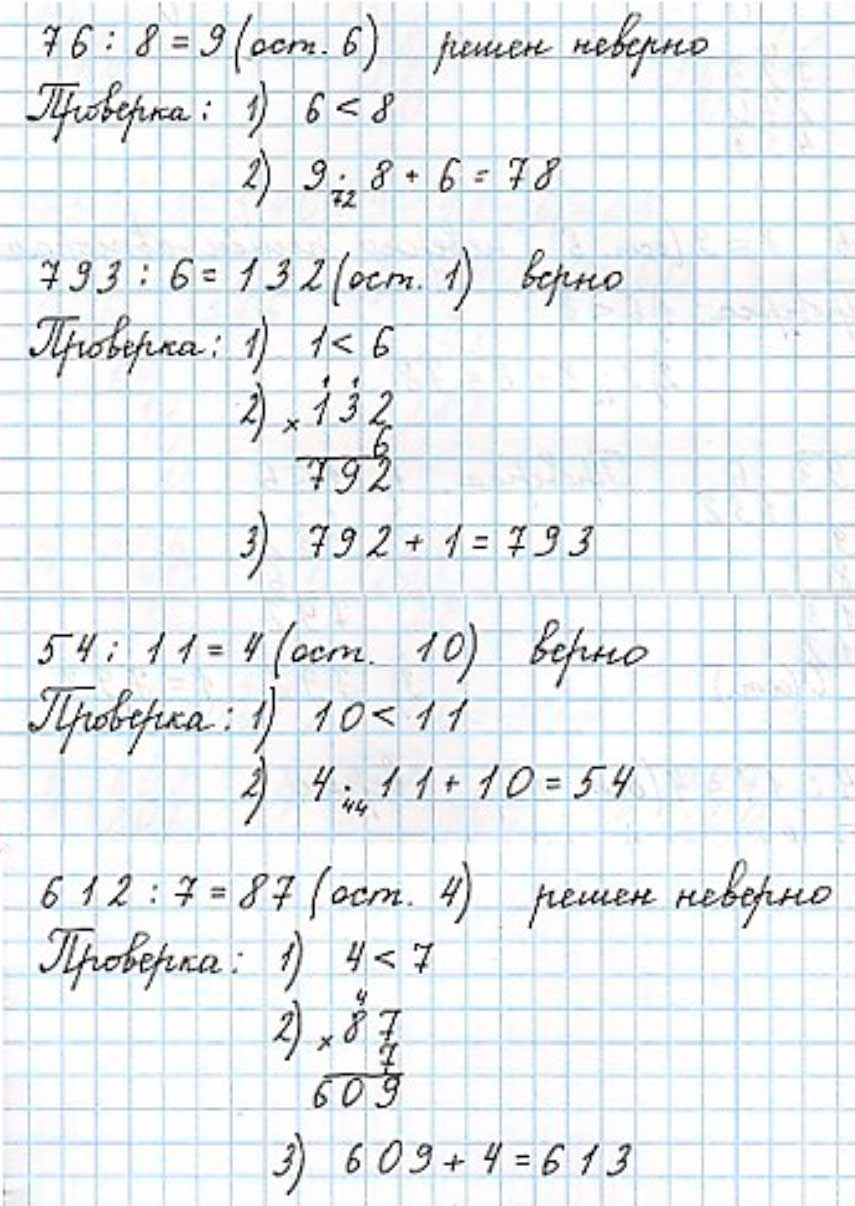 76 : 8 = 9 (ост. 6) решен неверно
Проверка: 1) 6 < 8
2) 9 · 8 + 6 = 78
72
793 : 6 = 132 (ост. 1) верно
Проверка: 1) 1 < 6
1 1
2) × 132
6
792
3) 792 + 1 = 793
54 : 11 = 4 (ост. 10) верно
Проверка: 1) 10 < 11
2) 4 · 11 + 10 = 54
44
612 : 7 = 87 (ост. 4) решен неверно
Проверка: 1) 4 < 7
4
2) × 87
7
609
3) 609 + 4 = 613